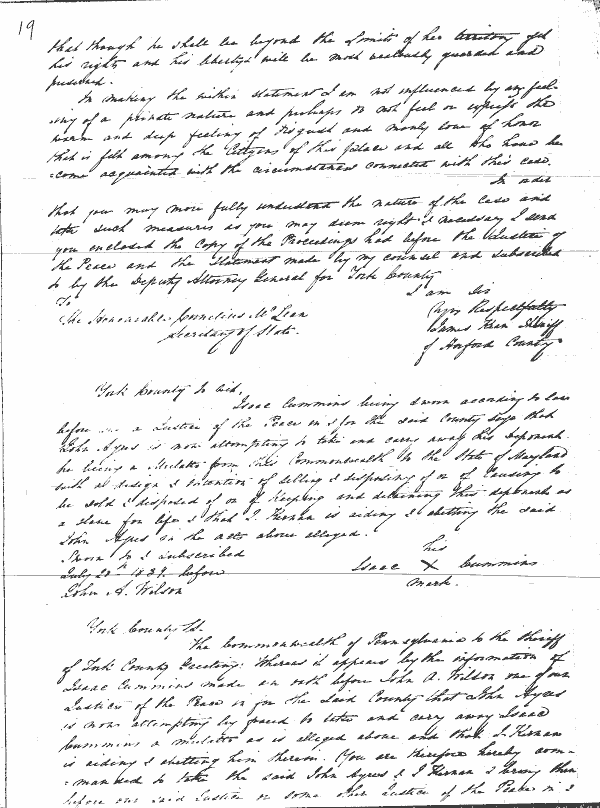 19
that though he shall be beyond the limits of her territory yet
his rights and his liberties will be most zealously guarded and
preserved.
In making the within statement I am not influenced by any feel-
-ing of a private nature and perhaps do not feel or express the
warm and deep feeling of disgust and manly love of honor
that is felt among the Citizens of this place and all who have be
-come acquainted with the circumstances connected with this case.
In order
that you may more fully understand the nature of the case and
take such measures as you may deem right & necessary I send
you enclosed the Copy of the Proceedings had before the Justice of
the Peace and the Statement made by my counsel and subscribed
to by the Deputy Attorney General for York County
To I am Sir
The Honourable Cornelius McLean Very Respectfully
Secretary of State. James Sheriff
of Harford County
York County to wit,
Isaac Cummins being sworn according to law
before a Justice of the Peace in & for the said County says that
John Ayres is now attempting to take and carry away this deponent
he being a Mulatto from this Commonwealth to the State of Maryland
with a design & intention of selling & disposing of or of Causing to
be sold & disposed of or of keeping and detaining this deponent as
a slave for life & that J. Kernan is aiding & abetting the said
John Ayres in the acts above alleged.
Sworn to & subscribed his
July 20th 1839 before Isaac X Cummins
John A. Wilson mark.
York County Ss.
The Commonwealth of Pennsylvania to the Sheriff
of York County Greeting: Whereas it appears by the information of
Isaac Cummins made on oath before John A. Wilson one of our
Justices of the Peace in for the said County that John Ayres
is now attempting by force to take and carry away Isaac
Cummins a mulatto as is alleged above and that J. Kernan
is aiding & abetting him therein. You are therefore hereby com-
-manded to take the said John Ayres & J Kernan & bring them
before our said Justice or some other Justice of the Peace in &